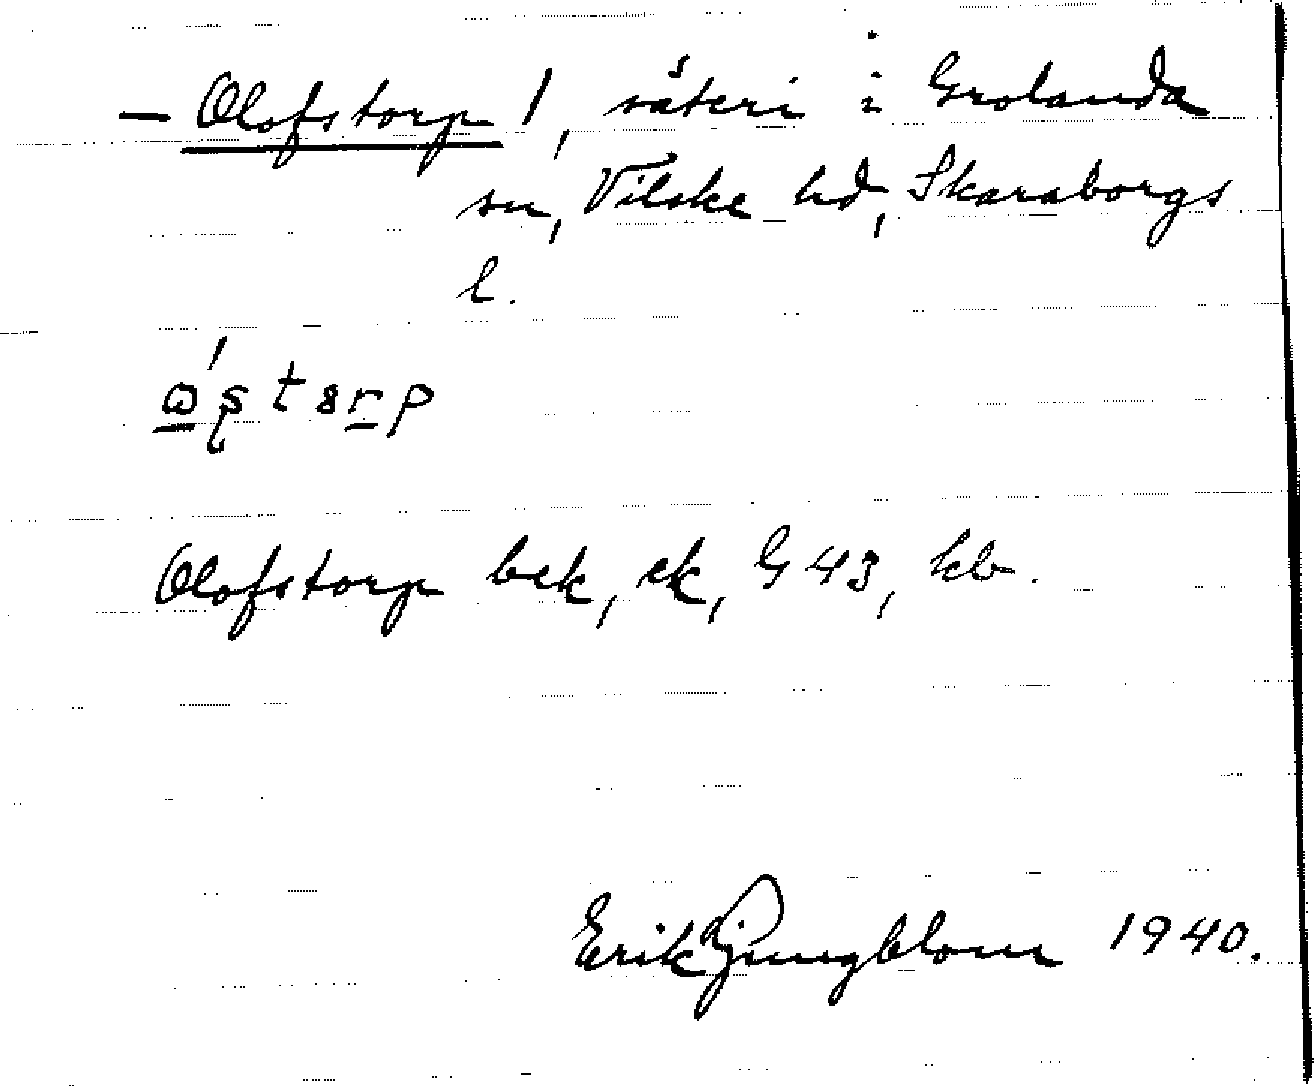 — Olofstorp 1, säteri i Grolanda
sn, Vilske hd, Skaraborgs
l.
Olofstorp bek, ek, G 43, kb.
Erik Ljungblom 1940.